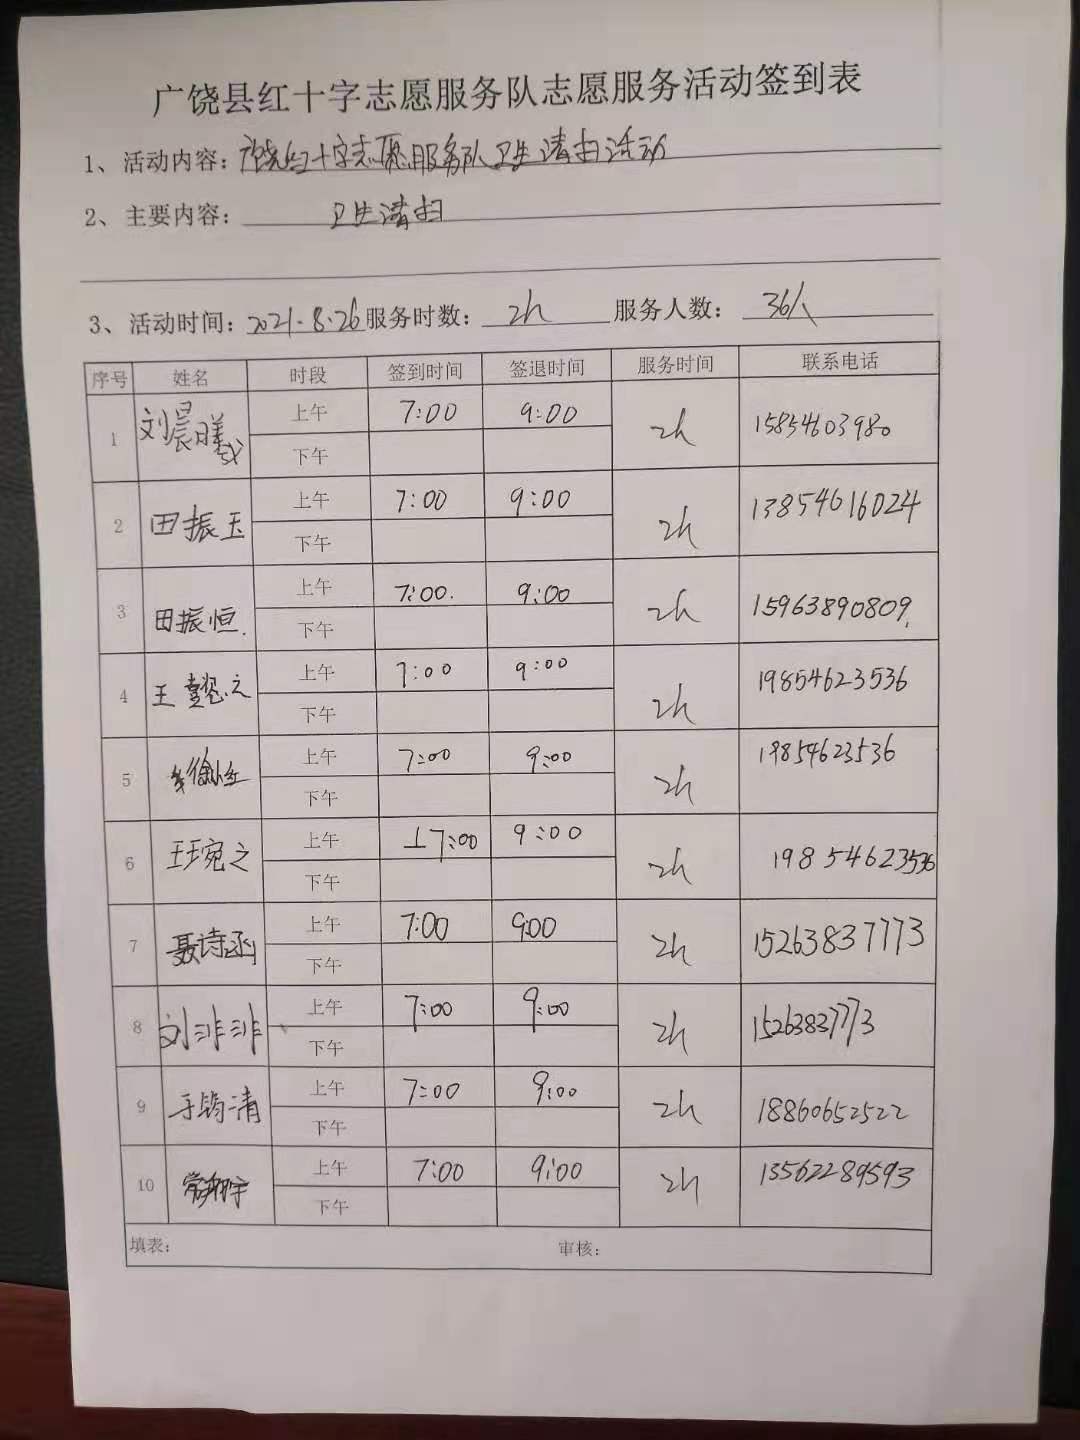 广饶县红十字志愿服务队志愿服务活动签到表
1、活动内容：广饶红十字志愿服务队卫生清扫活动
2、主要内容：卫生清扫
3、活动时间：2021.8.26 服务时数：2h 服务人数：36人
序号 姓名 时段 签到时间 签退时间 服务时间 联系电话
1 刘晨曦 上午 7:00 9:00 2h 15854603980
下午
2 田振玉 上午 7:00 9:00 2h 13854616024
下午
3 田振恒 上午 7:00 9:00 2h 15963890809
下午
4 王懿之 上午 7:00 9:00 2h 19854623536
下午
5 上午 7:00 9:00 2h 19854623536
下午
6 王宛之 上午 上7:00 9:00 2h 19854623536
下午
7 聂诗函 上午 7:00 9:00 2h 15263837773
下午
8 刘非非 上午 7:00 9:00 2h 15263837773
下午
9 于筠清 上午 7:00 9:00 2h 18860652522
下午
10 上午 7:00 9:00 2h 13562289593
下午
填表： 审核：